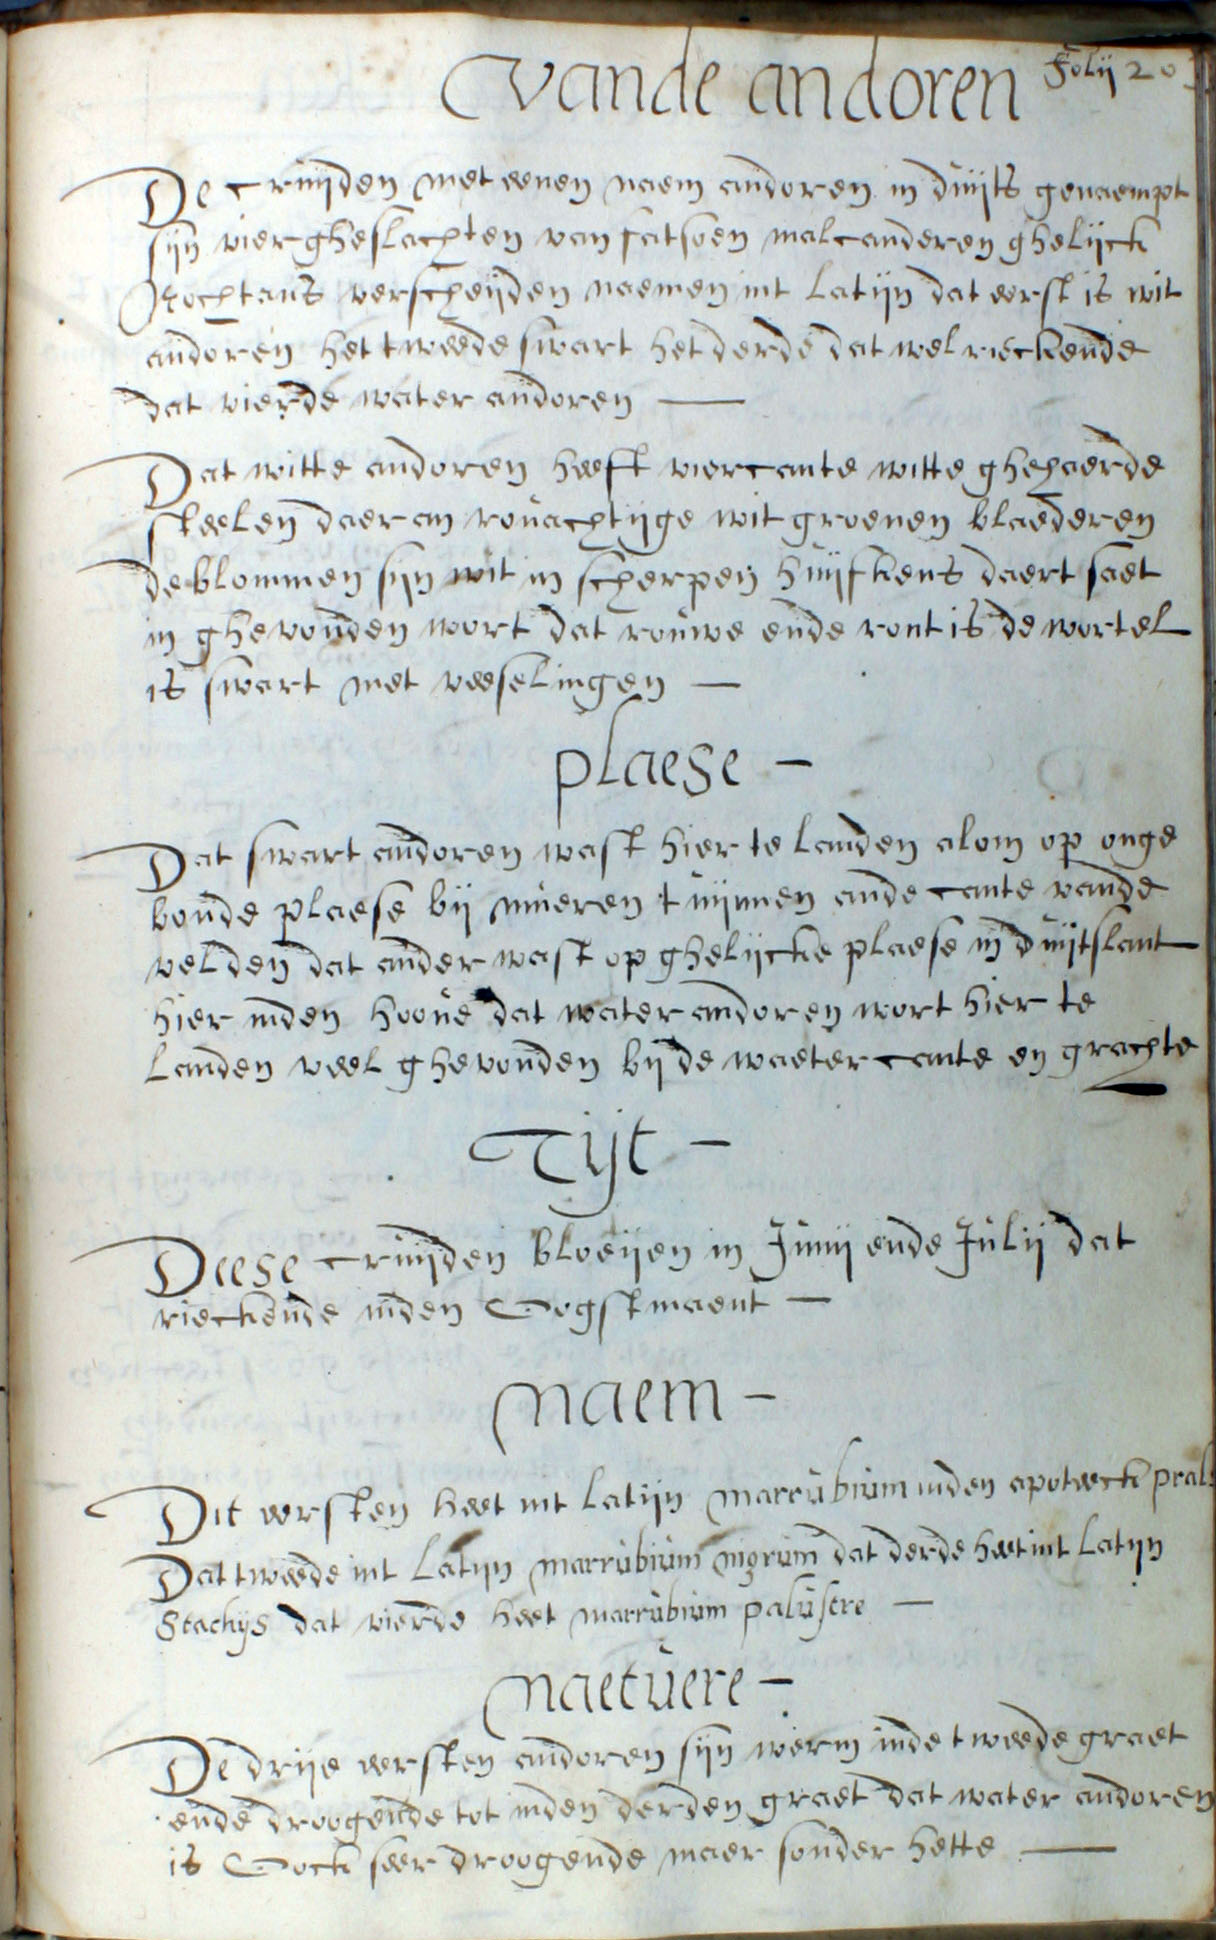 Vande andoren
Folij 20
De crùijden met eenen naem andoren in dùijts genaempt
sijn vier gheslachten van fatsoen malcanderen ghelijck
Nochtans verscheijden naemen int latijn dat eerst is wit
andoren het tweede swart het derde dat wel rieckende
dat vierde water andoren —
Dat witte andoren heeft viercante witte ghehaerde
steelen daer an rouachtijge wit groenen blaederen
de blommen sijn wit in scherpen hùijfkens daert saet
in ghevonden wort dat rouwe ende ront is de wortel
is swart met veeselingen —
plaese —
Dat swart andoren wast hier te landen alom op onge
bonde plaese bij mùeren tùijnnen ande cante vande
velden dat ander wast op ghelijcke plaese in dùijtslant
hier inden hoove dat water andoren wort hier te
landen veel ghevonden bij de waeter cante en grachte
Tijt —
Deese crùijden bloeijen in Jùnij ende Jùlij dat
rieckende inden Oogstmaent —
Naem —
Dit eersten heet int latijn marrùbiùm inden apoteeck
Dat tweede int Latijn marrùbiùm nigrùm dat derde heet int Latijn
Stachijs dat vierde heet marrùbiùm palùstre —
Naetùere —
De drije eersten andoren sijn werm inde tweede graet
ende droogende tot inden derden graet dat water andoren
is Oock seer droogende maer sonder hette —